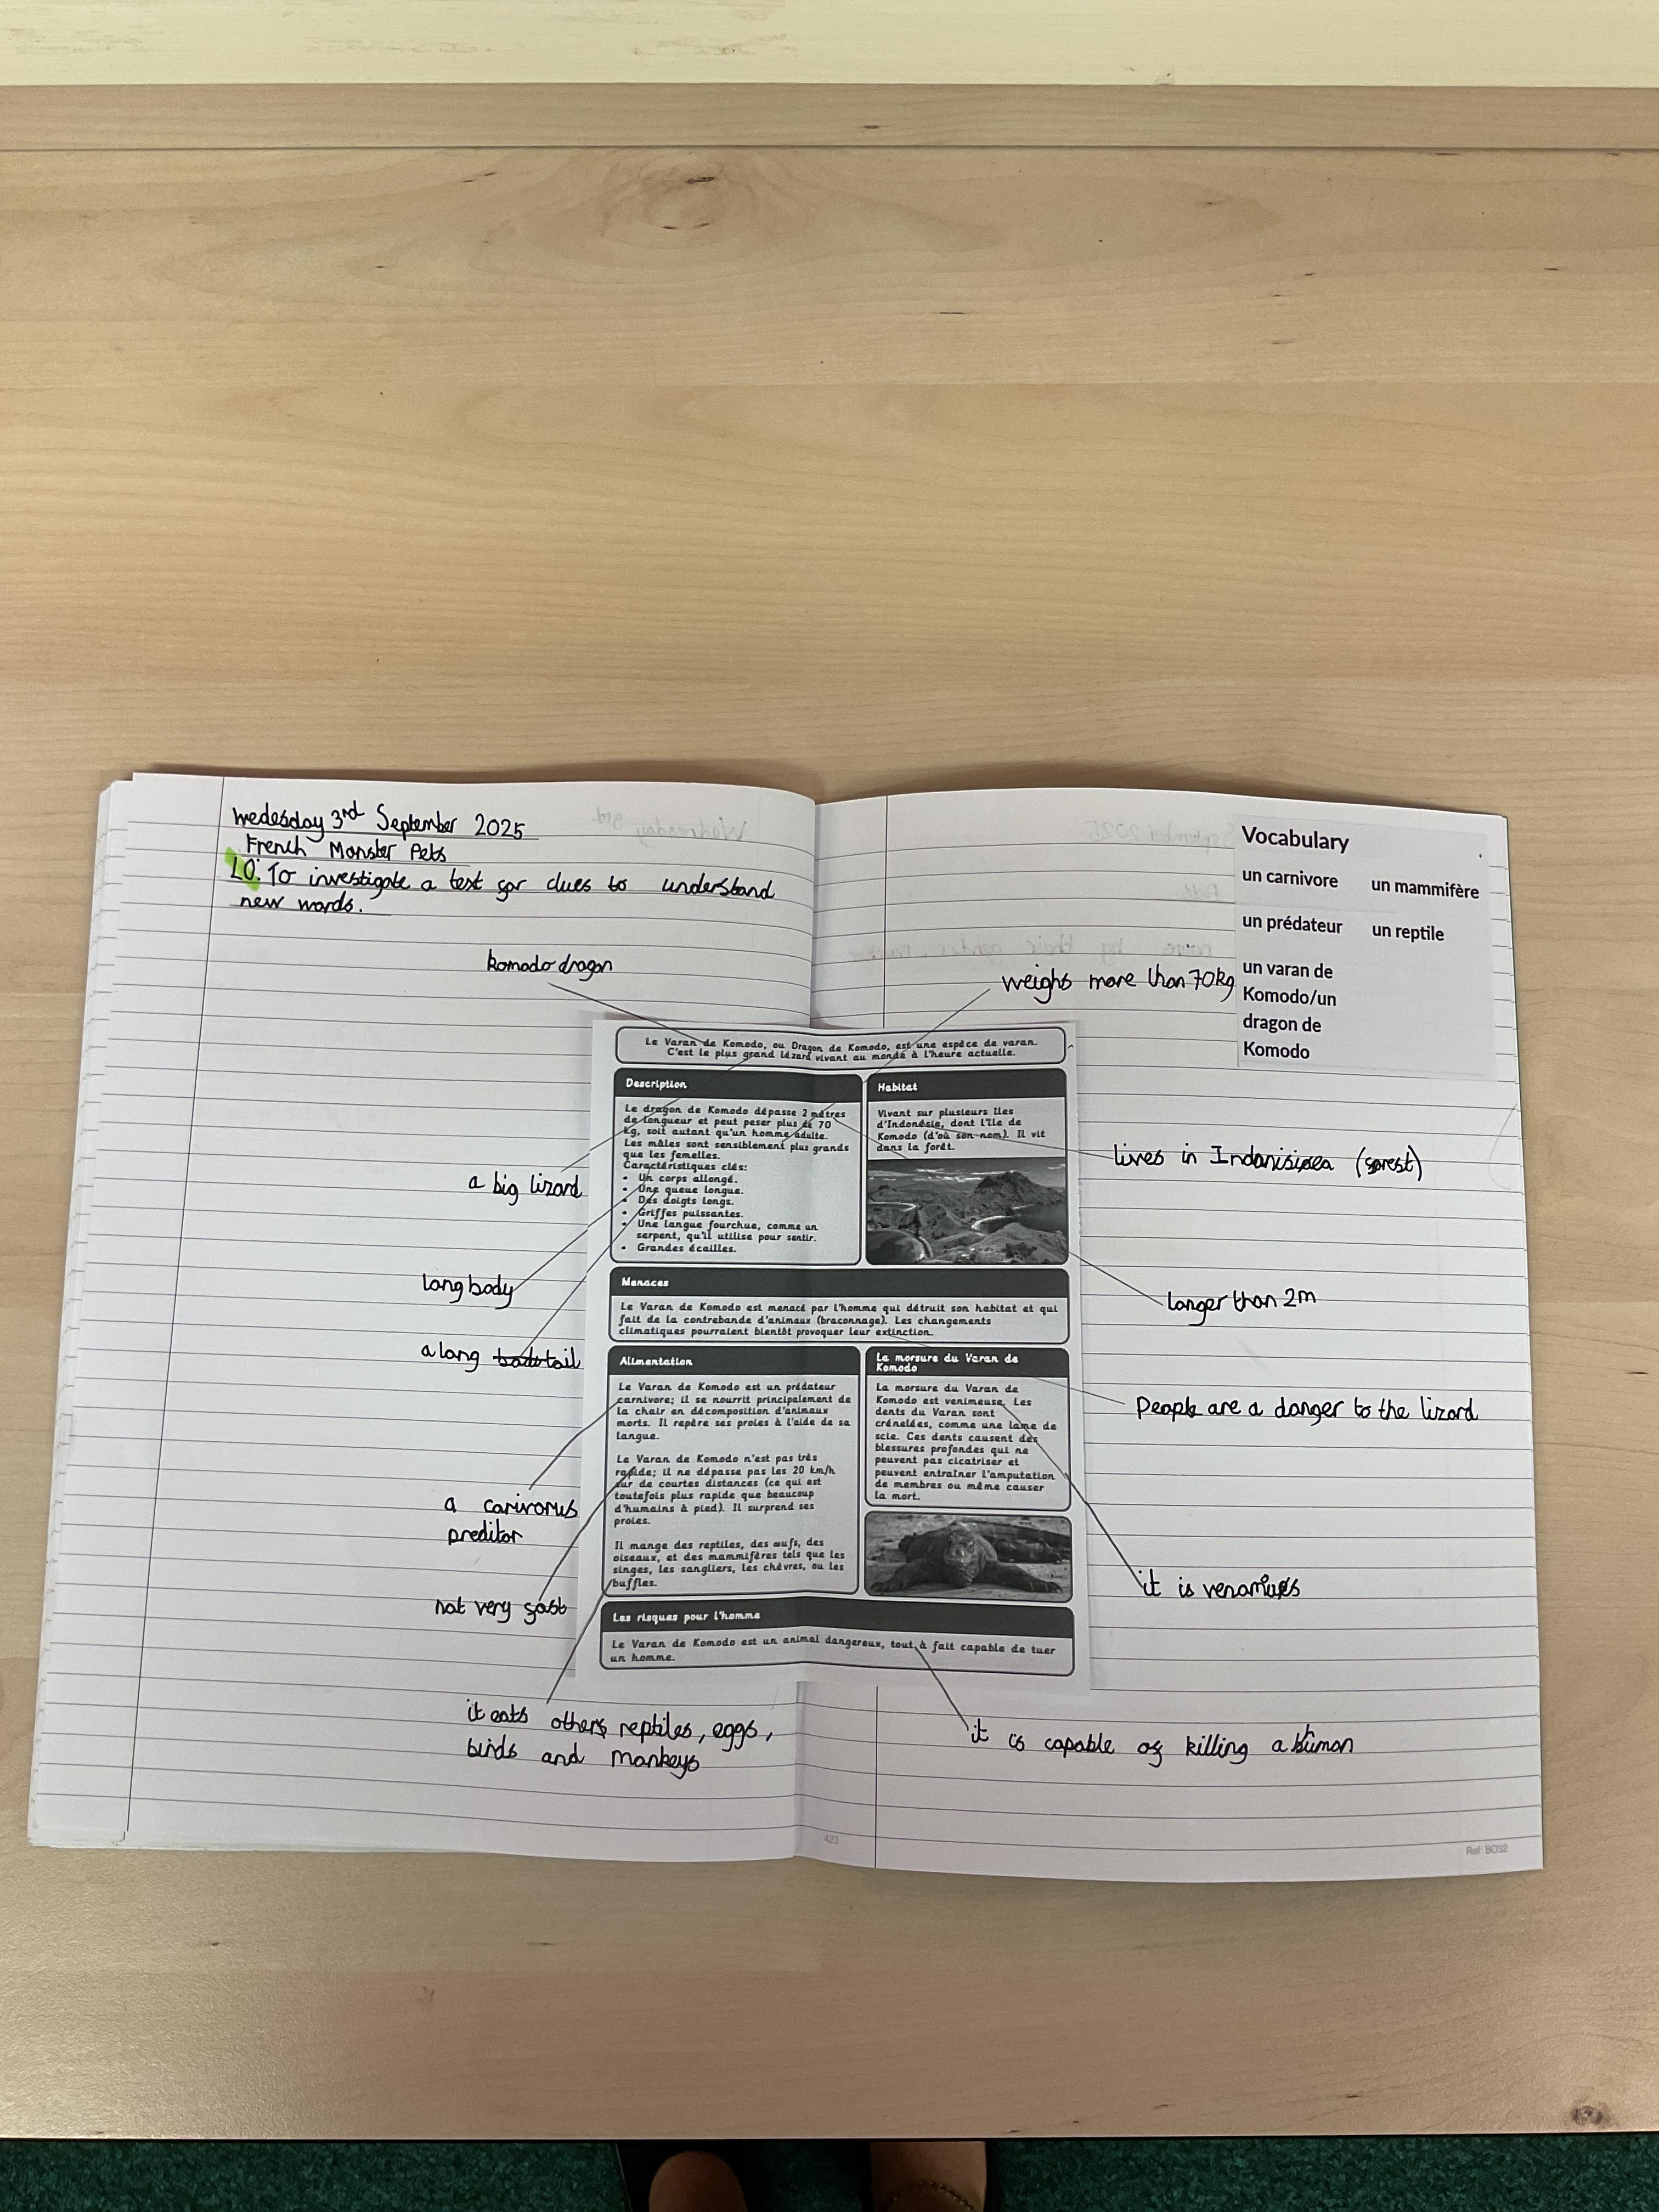 Wedesday 3rd September 2025
French Monster Pets
LO: To investigate a text for clues to understand
new words.
Vocabulary
un carnivore un mammifère
un prédateur un reptile
un varan de
Komodo/un
dragon de
Komodo
komodo dragon
weighs more than 70kg
Le Varan de Komodo, ou Dragon de Komodo, est une espèce de varan.
C'est le plus grand lézard vivant au monde à l'heure actuelle.
Description
Le dragon de Komodo dépasse 2 mètres
de longueur et peut peser plus de 70
Kg, soit autant qu'un homme adulte.
Les mâles sont sensiblement plus grands
que les femelles.
Caractéristiques clés:
• Un corps allongé.
• Une queue longue.
• Des doigts longs.
• Griffes puissantes.
• Une langue fourchue, comme un
serpent, qu'il utilise pour sentir.
• Grandes écailles.
Habitat
Vivant sur plusieurs îles
d'Indonésie, dont l'île de
Komodo (d'où son nom). Il vit
dans la forêt.
a big lizard
lives in Indonisiea (forest)
long body
longer than 2m
a long tail
Menaces
Le Varan de Komodo est menacé par l'homme qui détruit son habitat et qui
fait de la contrebande d'animaux (braconnage). Les changements
climatiques pourraient bientôt provoquer leur extinction.
People are a danger to the lizard
Alimentation
Le Varan de Komodo est un prédateur
carnivore; il se nourrit principalement de
la chair en décomposition d'animaux
morts. Il repère ses proies à l'aide de sa
langue.
Le Varan de Komodo n'est pas très
rapide; il ne dépasse pas les 20 km/h
sur de courtes distances (ce qui est
toutefois plus rapide que beaucoup
d'humains à pied). Il surprend ses
proies.
Il mange des reptiles, des œufs, des
oiseaux, et des mammifères tels que les
singes, les sangliers, les chèvres, ou les
buffles.
La morsure du Varan de
Komodo
La morsure du Varan de
Komodo est venimeuse. Les
dents du Varan sont
crénelées, comme une lame de
scie. Ces dents causent des
blessures profondes qui ne
peuvent pas cicatriser et
peuvent entraîner l'amputation
de membres ou même causer
la mort.
a carivorus
preditor
not very fast
it is venomius
Les risques pour l'homme
Le Varan de Komodo est un animal dangereux, tout à fait capable de tuer
un homme.
it eats others reptiles, eggs,
birds and monkeys
it is capable of killing a human
423
Ref: BO32